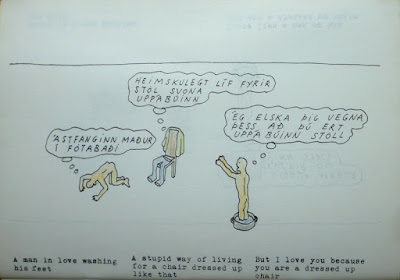 ÁSTFANGINN MAÐUR
Í FÓTABAÐI
HEIMSKULEGT LÍF FYRIR
STÓL SVONA
UPPÁBÚINN
ÉG ELSKA ÞIG VEGNA
ÞESS AÐ ÞÚ ERT
UPPÁBÚINN STÓLL
A man in love washing
his feet
A stupid way of living
for a chair dressed up
like that
But I love you because
you are a dressed up
chair